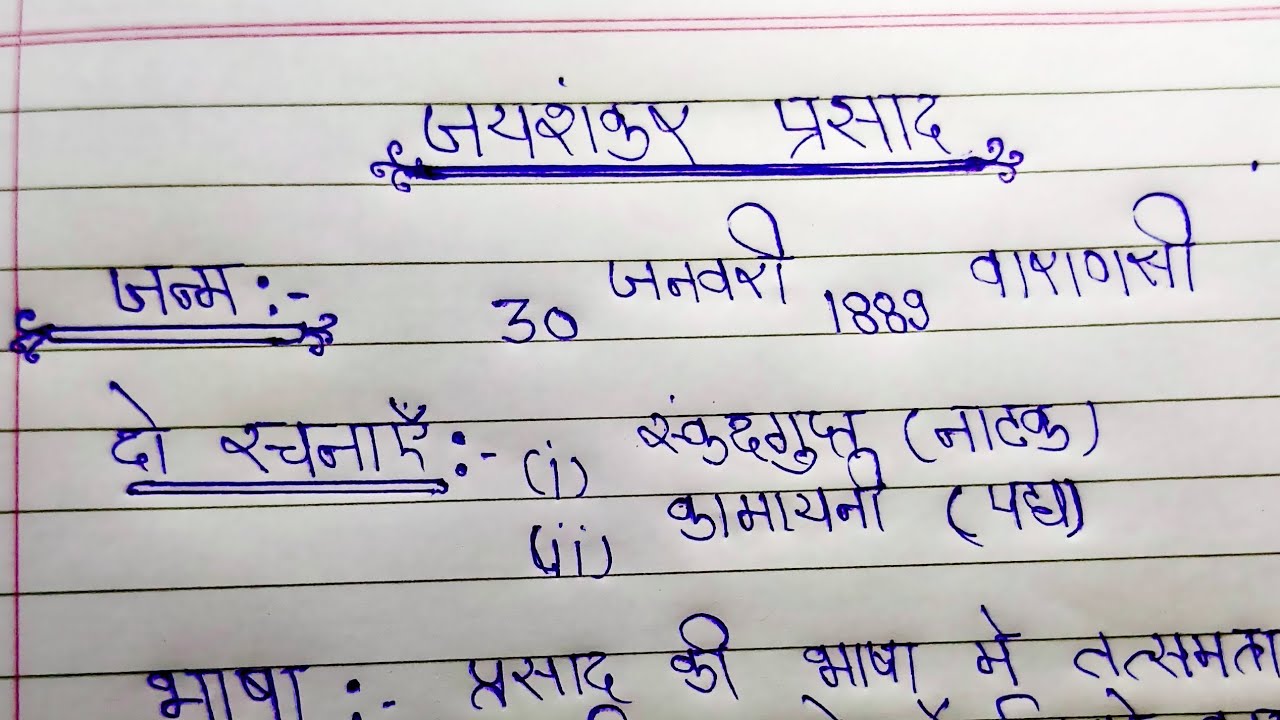 जयशंकर प्रसाद
जन्म :- 30 जनवरी 1889 वाराणसी
दो रचनाएँ :- (i) स्कंदगुप्त (नाटक)
(ii) कामायनी (पद्य)
भाषा :- प्रसाद की भाषा मे तत्समता